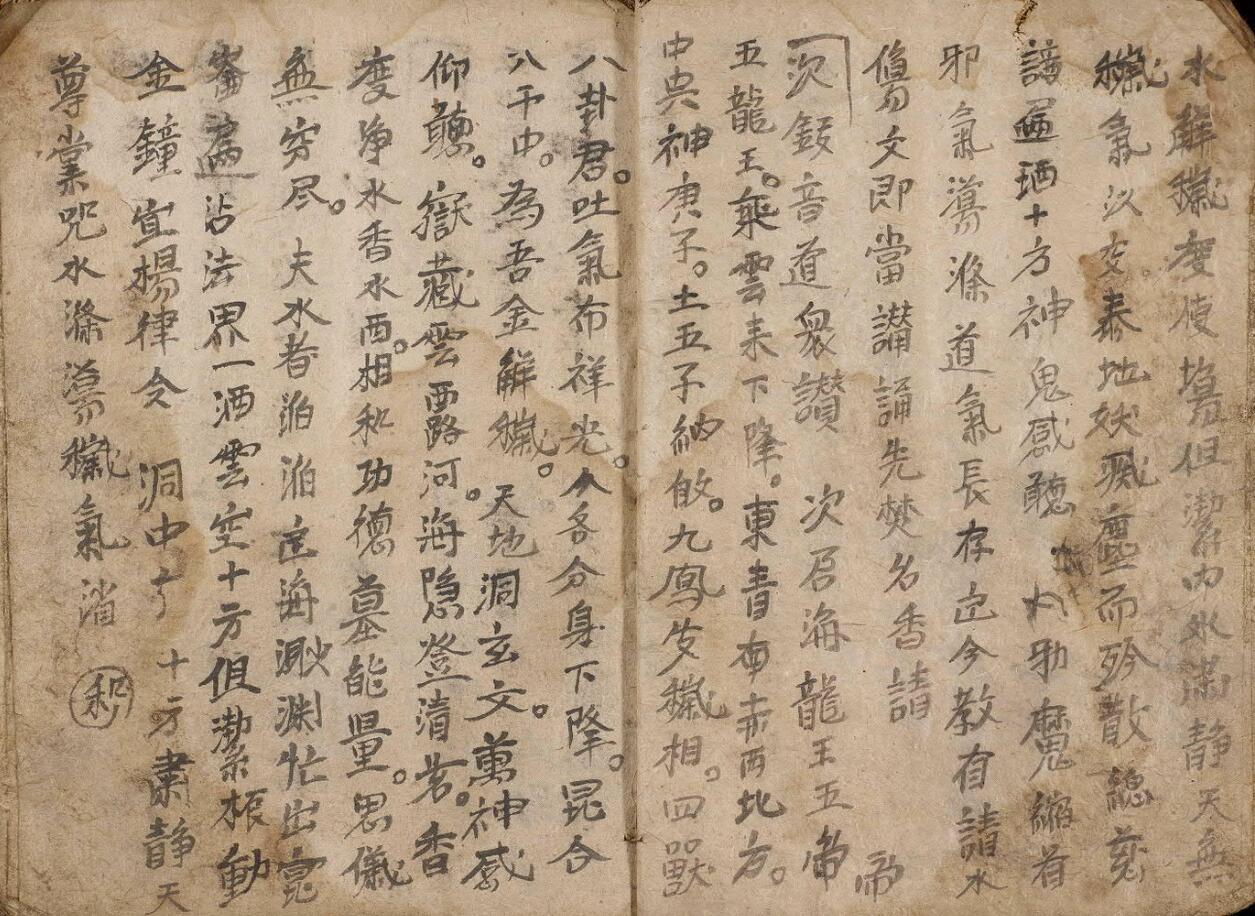 水解穢度使蕩但潔內外肅静天無
穢氣以交泰地妖穢塵而殄散總爰
諱遍洒十方神鬼感聽 邪魔縮首
邪氣蕩滌道氣長存定今教有請水
偈文即當讃誦先焚名香請
次鈸音道衆讃 次召海龍王五帝
五龍王。乘雲来下降。東青南赤西北方。
中央神庚子。土五子納攸。九鳳癹穢相。四獸
八卦君。吐氣布祥光。今各分身下降。混合
八千中。為吾金解穢。天地洞玄文。萬神感
仰聽。嶽藏雲西路河。海隐登清茗。香
度净水香水西相。和功德墓能量。思儀
無穷尽。夫水者滔滔定海測渊忙出
遍沾法界一洒雲空十方俱潔振動
金鐘宣楊律令 洞中 十方肅静天
尊掌咒水滌蕩穢氣消